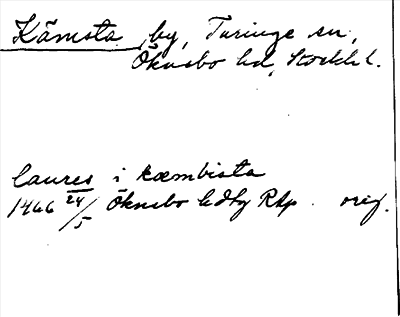 Kämsta, by, Turinge sn,
Öknebo hd, Stockh. l.
laures i kæmbista
1466 24/5 Öknebo hdtg RAp. orig.